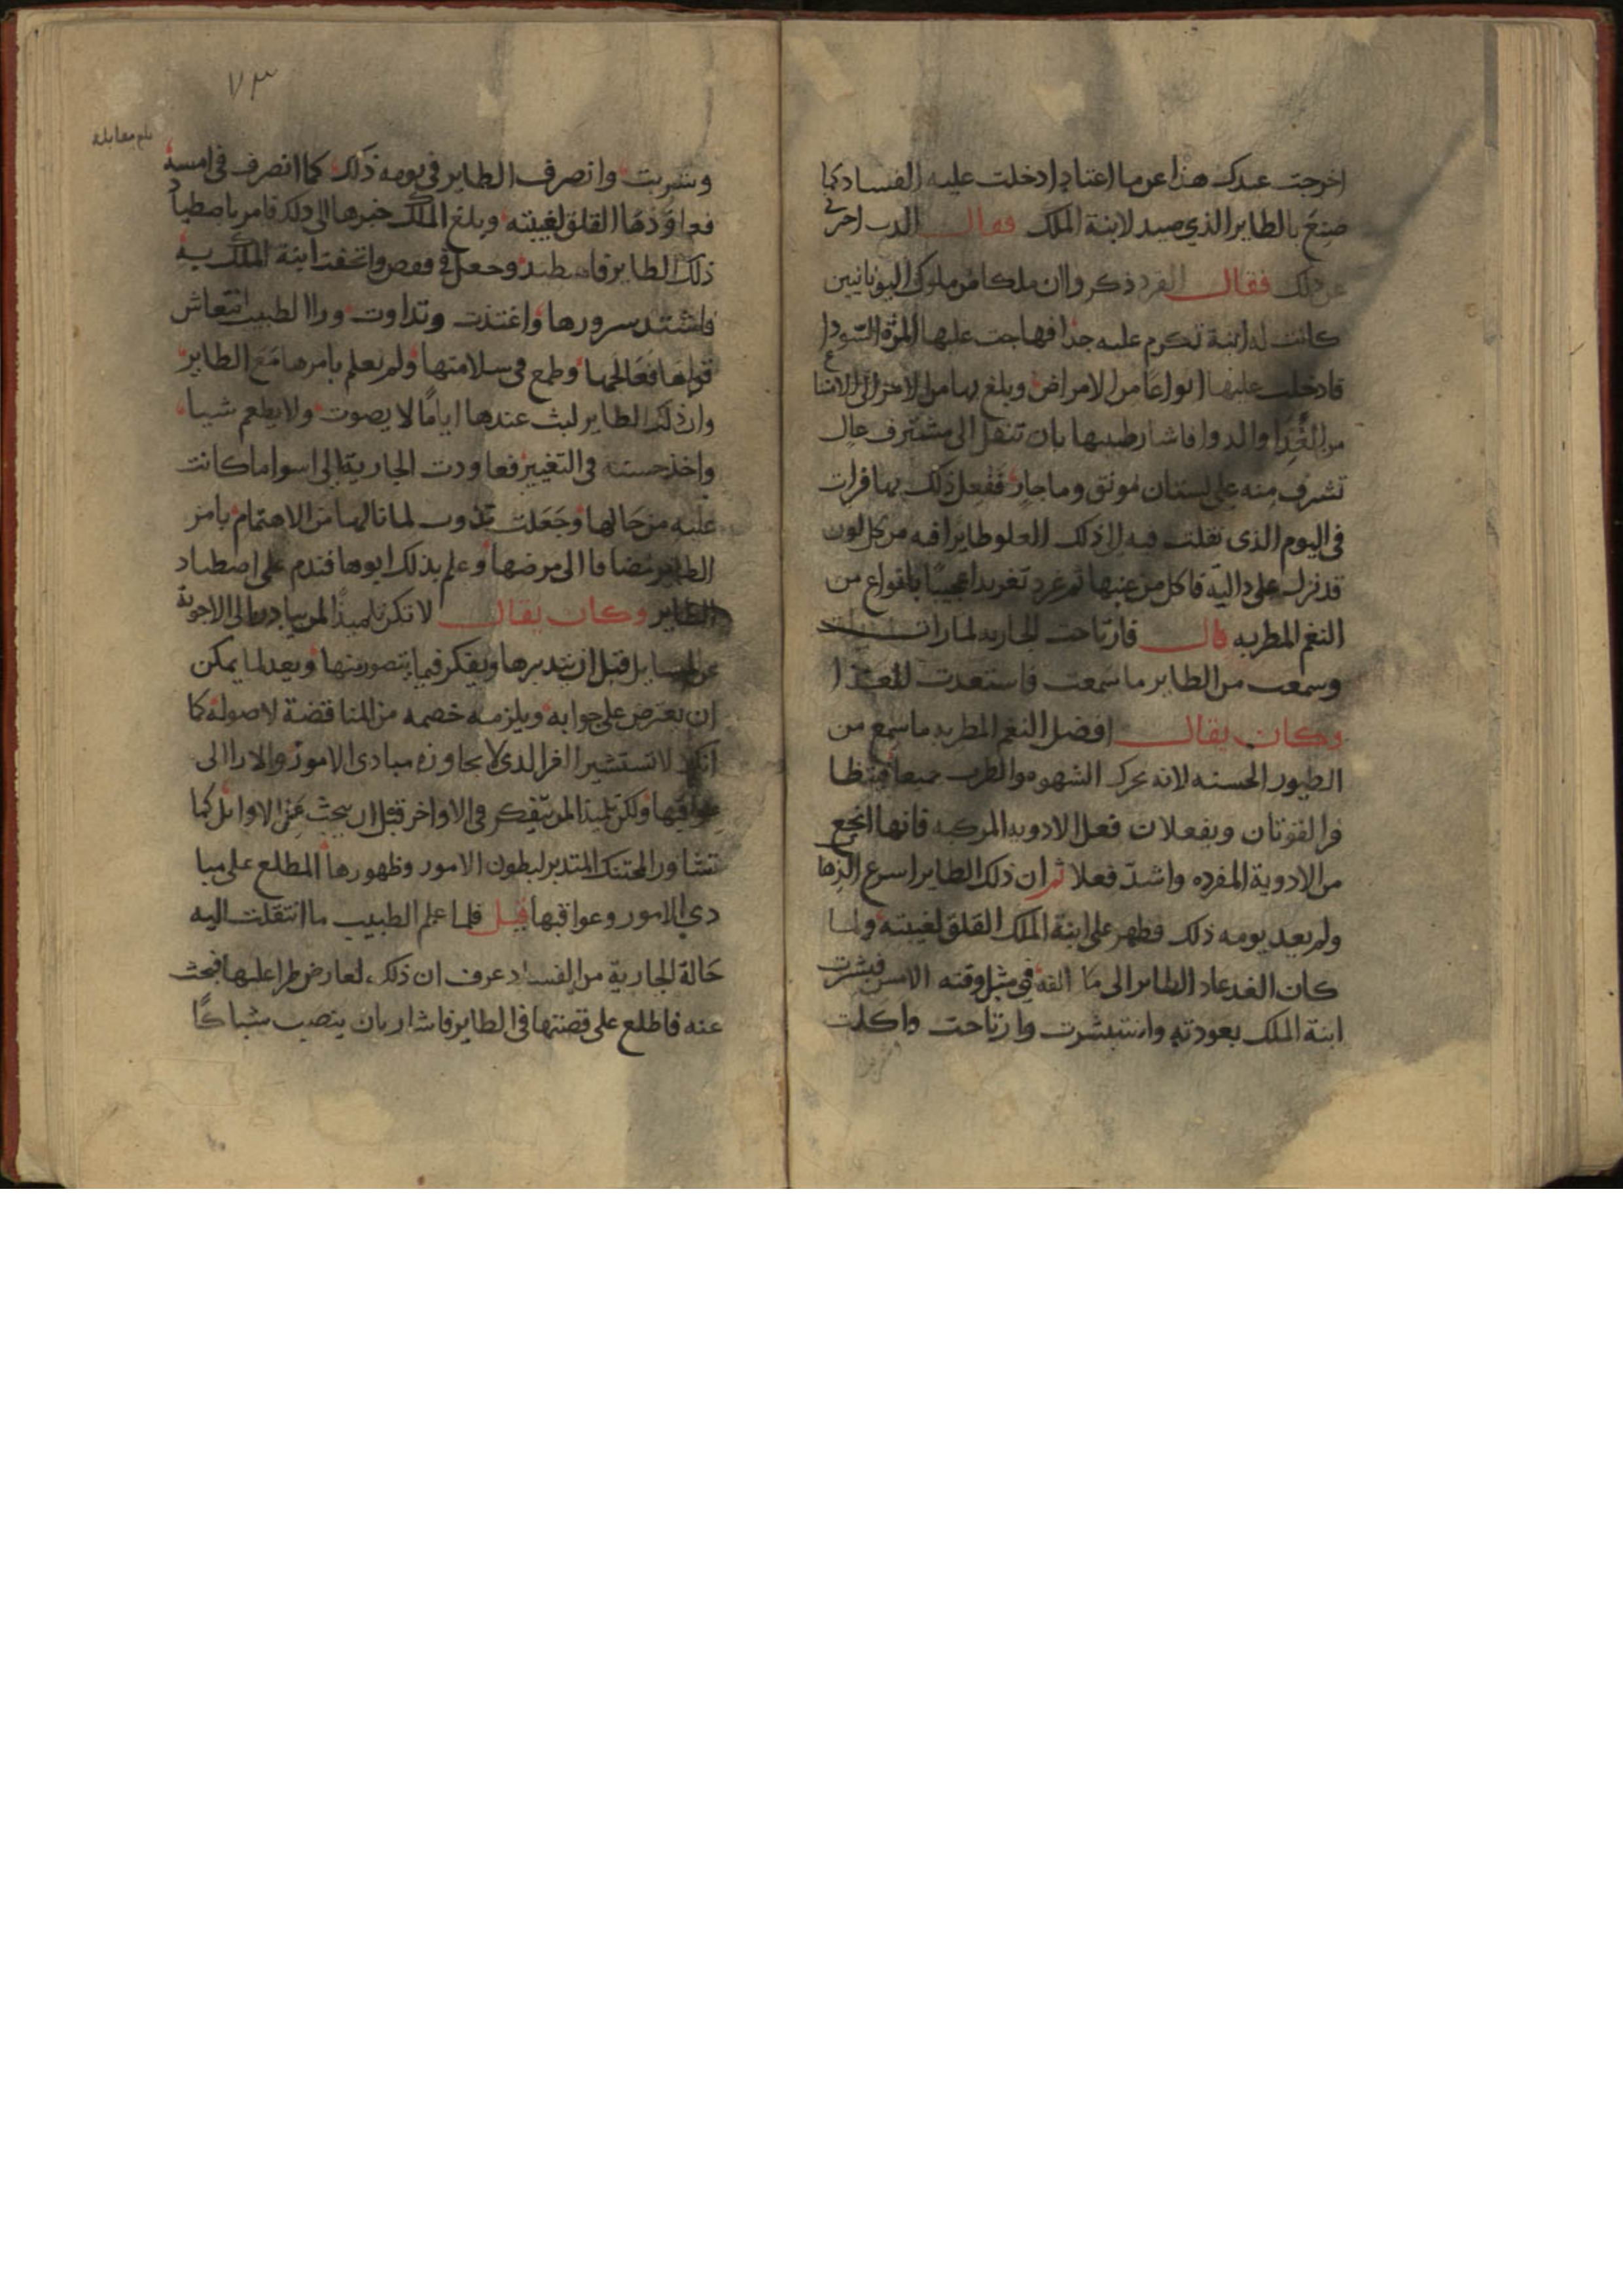 اخرجت عبدك هذا عن ما اعتاد ادخلت عليه الفساد كما
صنع بالطاير الذي صيد لابنة الملك فقال الدب اخبرني
عن ذلك فقال القرد ذكروا ان ملكا من ملوك اليونانيين
كانت له ابنة تكرم عليه جدا فهاجت عليها المرة السودا
فادخلت عليها انواعا من الامراض وبلغ بها من الامر الى الامتناع
من الغذا والدوا فاشار طبيبها بان تنقل الى مشترف عال
تشرف منه على بستان مونق وما جار ففعل ذلك بها فرات
في اليوم الذى نقلت فيه الى ذلك العلو طايرا فيه من كل لون
قد نزل على دالية فاكل من عنبها ثم غرد تغريدا عجيبا بانواع من
النغم المطربه قال فارتاحت الجاريه لما رات
وسمعت من الطاير ما سمعت فاستعدت للغذا
وكان يقال افضل النغم المطربه ما سمع من
الطيور الحسنه لانه يحرك الشهوه والطرب جميعا فتتظا
فر القوتان ويفعلان فعل الادويه المركبه فانها انجع
من الادوية المفرده واشد فعلا ثم ان ذلك الطاير اسرع الذها
ولم يعد يومه ذلك فظهر على ابنة الملك القلق لغيبته ولما
كان الغد عاد الطاير الى ما الفه في مثل وقته الامس فبشرت
ابنة الملك بعودته واستبشرت وارتاحت واكلت
٧٣
بلغ مقابلة
وشربت وانصرف الطاير في يومه ذلك كما انصرف في امسه
فعاودها القلق لغيبته وبلغ الملك خبرها الى ذلك فامر باصطياد
ذلك الطاير فاصطيد وجعل في قفص واتحفت ابنة الملك به
فاشتد سرورها واغتذت وتداوت وراا الطبيب انتعاش
قواها فعالجها وطمع في سلامتها ولم يعلم بامرها مع الطاير
وان ذلك الطاير لبث عندها اياما لا يصوت ولا يطعم شيا
واخذ حسنه في التغيير فعاودت الجارية الى اسوا ما كانت
عليه من حالها وجعلت تذوب لما نالها من الاهتمام بامر
الطاير مضافا الى مرضها وعلم بذلك ابوها فندم على اصطياد
الطاير وكان يقال لا تكن تلميذا لمن يبادر الى الاجوبة
عن المسايل قبل ان يتدبرها ويفكر فيما يتصور منها ويعد لما يمكن
ان يعترض على جوابه ويلزمه خصمه من المناقضة لاصوله كما
انك لا تستشير الغر الذى لا يجاوزه مبادى الامور والارا الى
عواقبها ولكن تلميذا لمن يفكر في الاواخر قبل ان يبحث عن الاوائل كما
تشاور المحتنك المتدبر لبطون الامور وظهورها المطلع على مبا
دي الامور وعواقبها قيل فلما علم الطبيب ما انتقلت اليه
حالة الجارية من الفساد عرف ان ذلك لعارض طرا عليها فبحث
عنه فاطلع على قصتها في الطاير فاشار بان ينصب شباكا